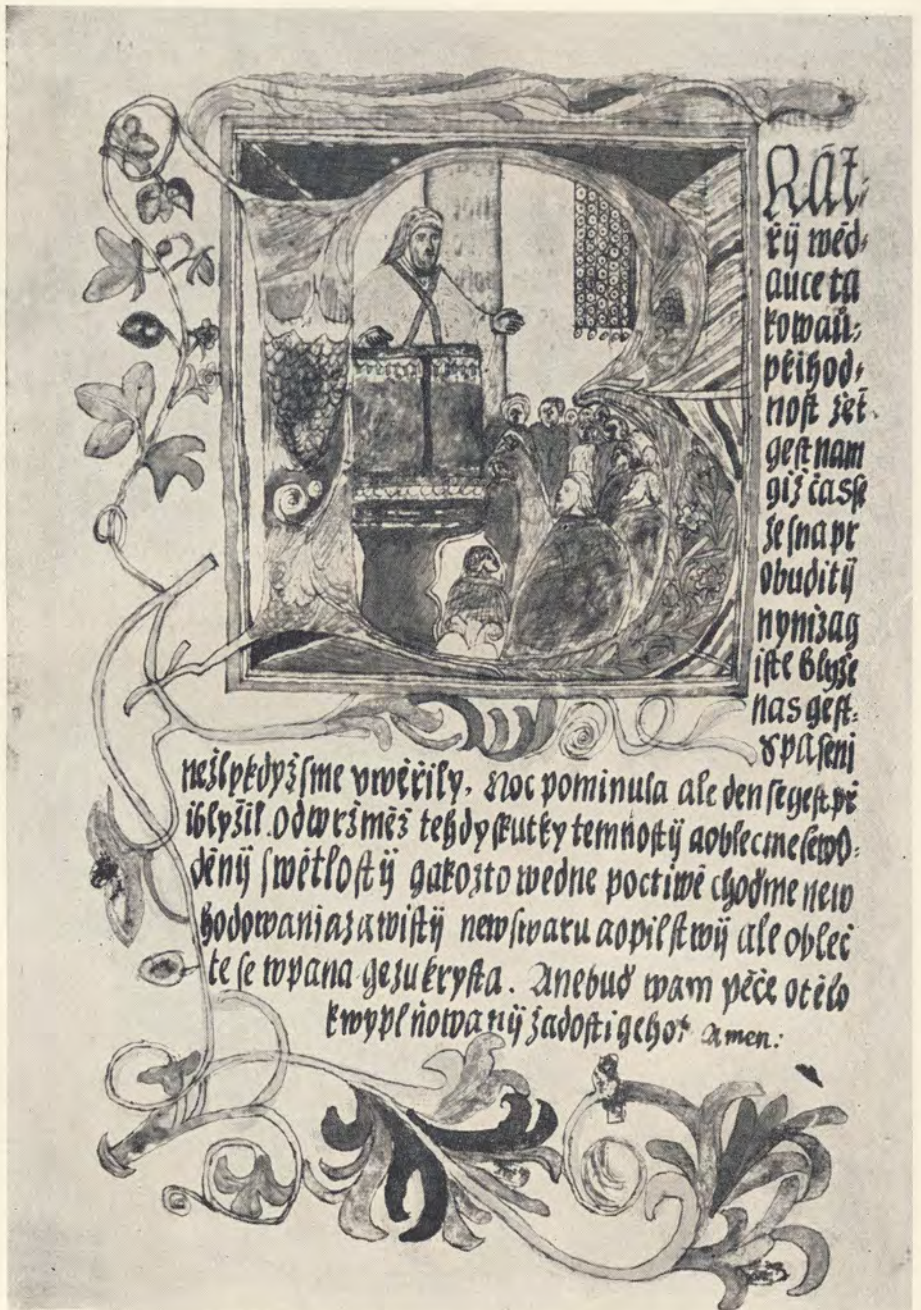 Ráť:
řÿ wěd:
auce ta
kowau:
přihod:
nost žeť
gest nam
giž čas se
že sna pr
obuditÿ
nynizag
iste blyže
nas gest:
spaseni
nežlykdyž sme vwěřily. Noc pominula ale den se gest př
iblyžil. Odwržměž tehdy skutky temnostÿ aoblecmesewo:
děnÿ swětlostÿ gakožto wedne poctiwě choďme new
hodowaniazawistÿ newswaru aopilstwÿ ale oblec
te se wpana gezukrysta. Anebuď wam péče otělo
kwyplňowanÿ žadosti geho: Amen: